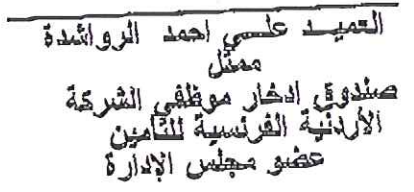 العميد علي احمد الرواشدة
ممثل
صندوق ادخار موظفي الشركة
الأردنية الفرنسية للتأمين
عضو مجلس الإدارة